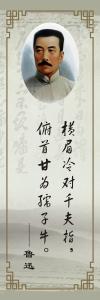 横眉冷对千夫指，
俯首甘为孺子牛。
鲁迅